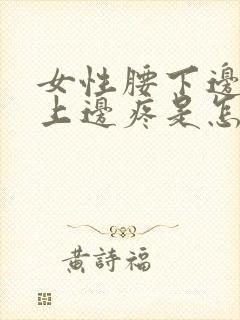 女性腰下邊
上邊疼是怎
黃詩福